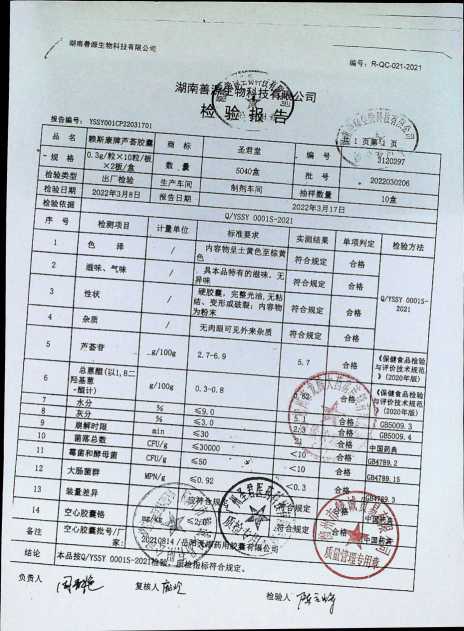 湖南善源生物科技有限公司
编号：R-QC-021-2021
湖南善源生物科技有限公司
检验报告
报告编号：YSSY001CP22031701
共 1 页第 1 页
品名 赖斯康牌芦荟胶囊 商标 圣君堂 编号 3120297
规格 0.3g/粒×10粒/板×2板/盒 数量 5040盒 批号 2022030206
检验类型 出厂检验 生产车间 制剂车间 抽样数量 10盒
检验日期 2022年3月8日 报告日期 2022年3月17日
检验依据 Q/YSSY 0001S-2021
序号 检测项目 计量单位 标准要求 实测结果 单项判定 检验方法
1 色泽 / 内容物呈土黄色至棕黄色 符合规定 合格
2 滋味、气味 / 具本品特有的滋味，无异味 符合规定 合格
3 性状 / 硬胶囊，完整光洁，无粘结、变形或破裂；内容物为粉末 符合规定 合格 Q/YSSY 0001S-2021
4 杂质 / 无肉眼可见外来杂质 符合规定 合格
5 芦荟苷 g/100g 2.7-6.9 5.7 合格 《保健食品检验与评价技术规范》(2020年版)
6 总蒽醌(以1,8二羟基蒽醌计) g/100g 0.3-0.8 0.62 合格 《保健食品检验与评价技术规范》(2020年版)
7 水分 % ≤9.0 5.1 合格 GB5009.3
8 灰分 % ≤3.0 2.3 合格 GB5009.4
9 崩解时限 min ≤30 21 合格 中国药典
10 菌落总数 CFU/g ≤30000 <10 合格 GB4789.2
11 霉菌和酵母菌 CFU/g ≤50 <10 合格 GB4789.15
12 大肠菌群 MPN/g ≤0.92 <0.3 合格 GB4789.3
13 装量差异 应符合规定 符合规定 合格 中国药典
14 空心胶囊铬 mg/kg ≤2.0 合格 中国药典
备注 空心胶囊批号/厂家：20210814/
结论 本品按Q/YSSY 0001S-2021检验，所检指标符合规定。
负责人 复核人 检验人
质量管理专用章